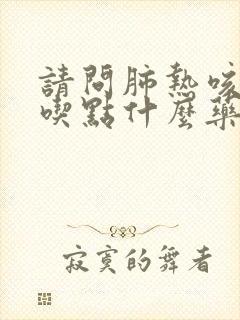 請問肺熱咳
喫點什麼藥
寂寞的舞者